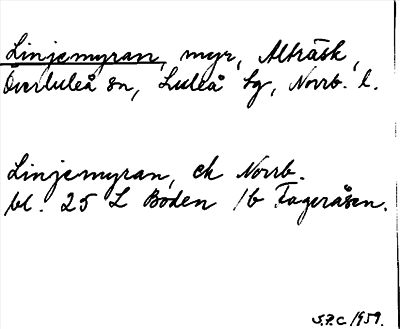 Linjemyran, myr, Alträsk,
Överluleå sn, Luleå tg, Norrb. l.
Linjemyran, ek Norrb.
bl. 25 L Boden /b Fageråsen.
S.P.C. 1959.